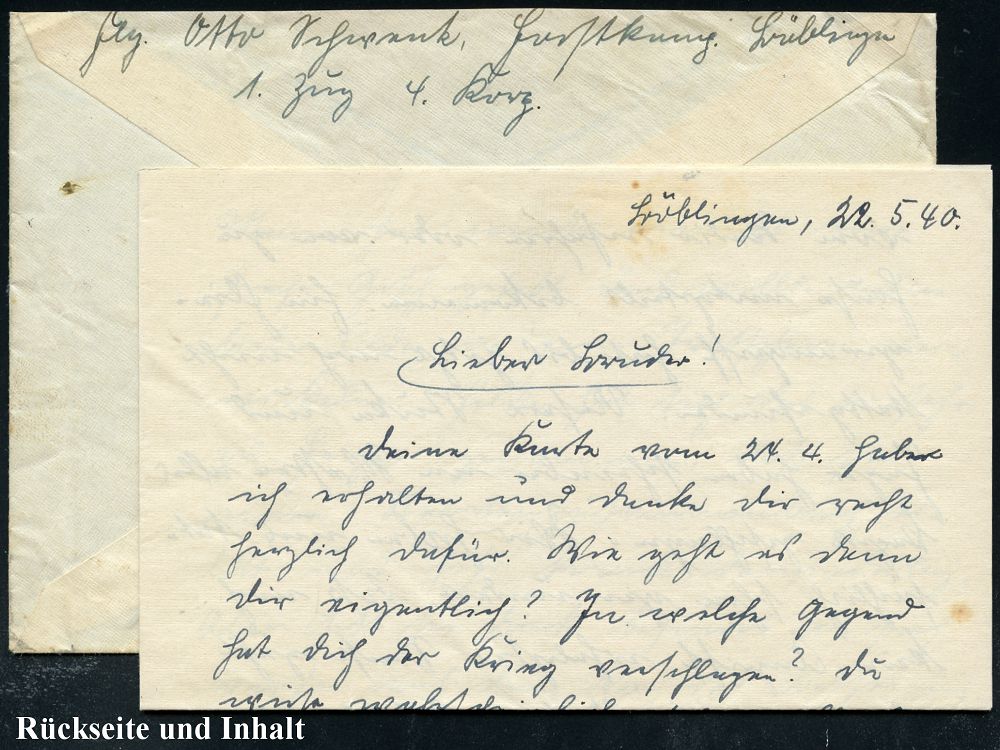 Flg. Otto Schwenk, Horstkomp. Böblingen
1. Zug 4. Korp.
Böblingen, 22. 5. 40.
Lieber Bruder!
Deine Karte vom 24. 4. habe
ich erhalten und danke dir recht
herzlich dafür. Wie geht es denn
dir eigentlich? In welche Gegend
hat dich der Krieg verschlagen? Du
wirst wahrscheinlich
Rückseite und Inhalt